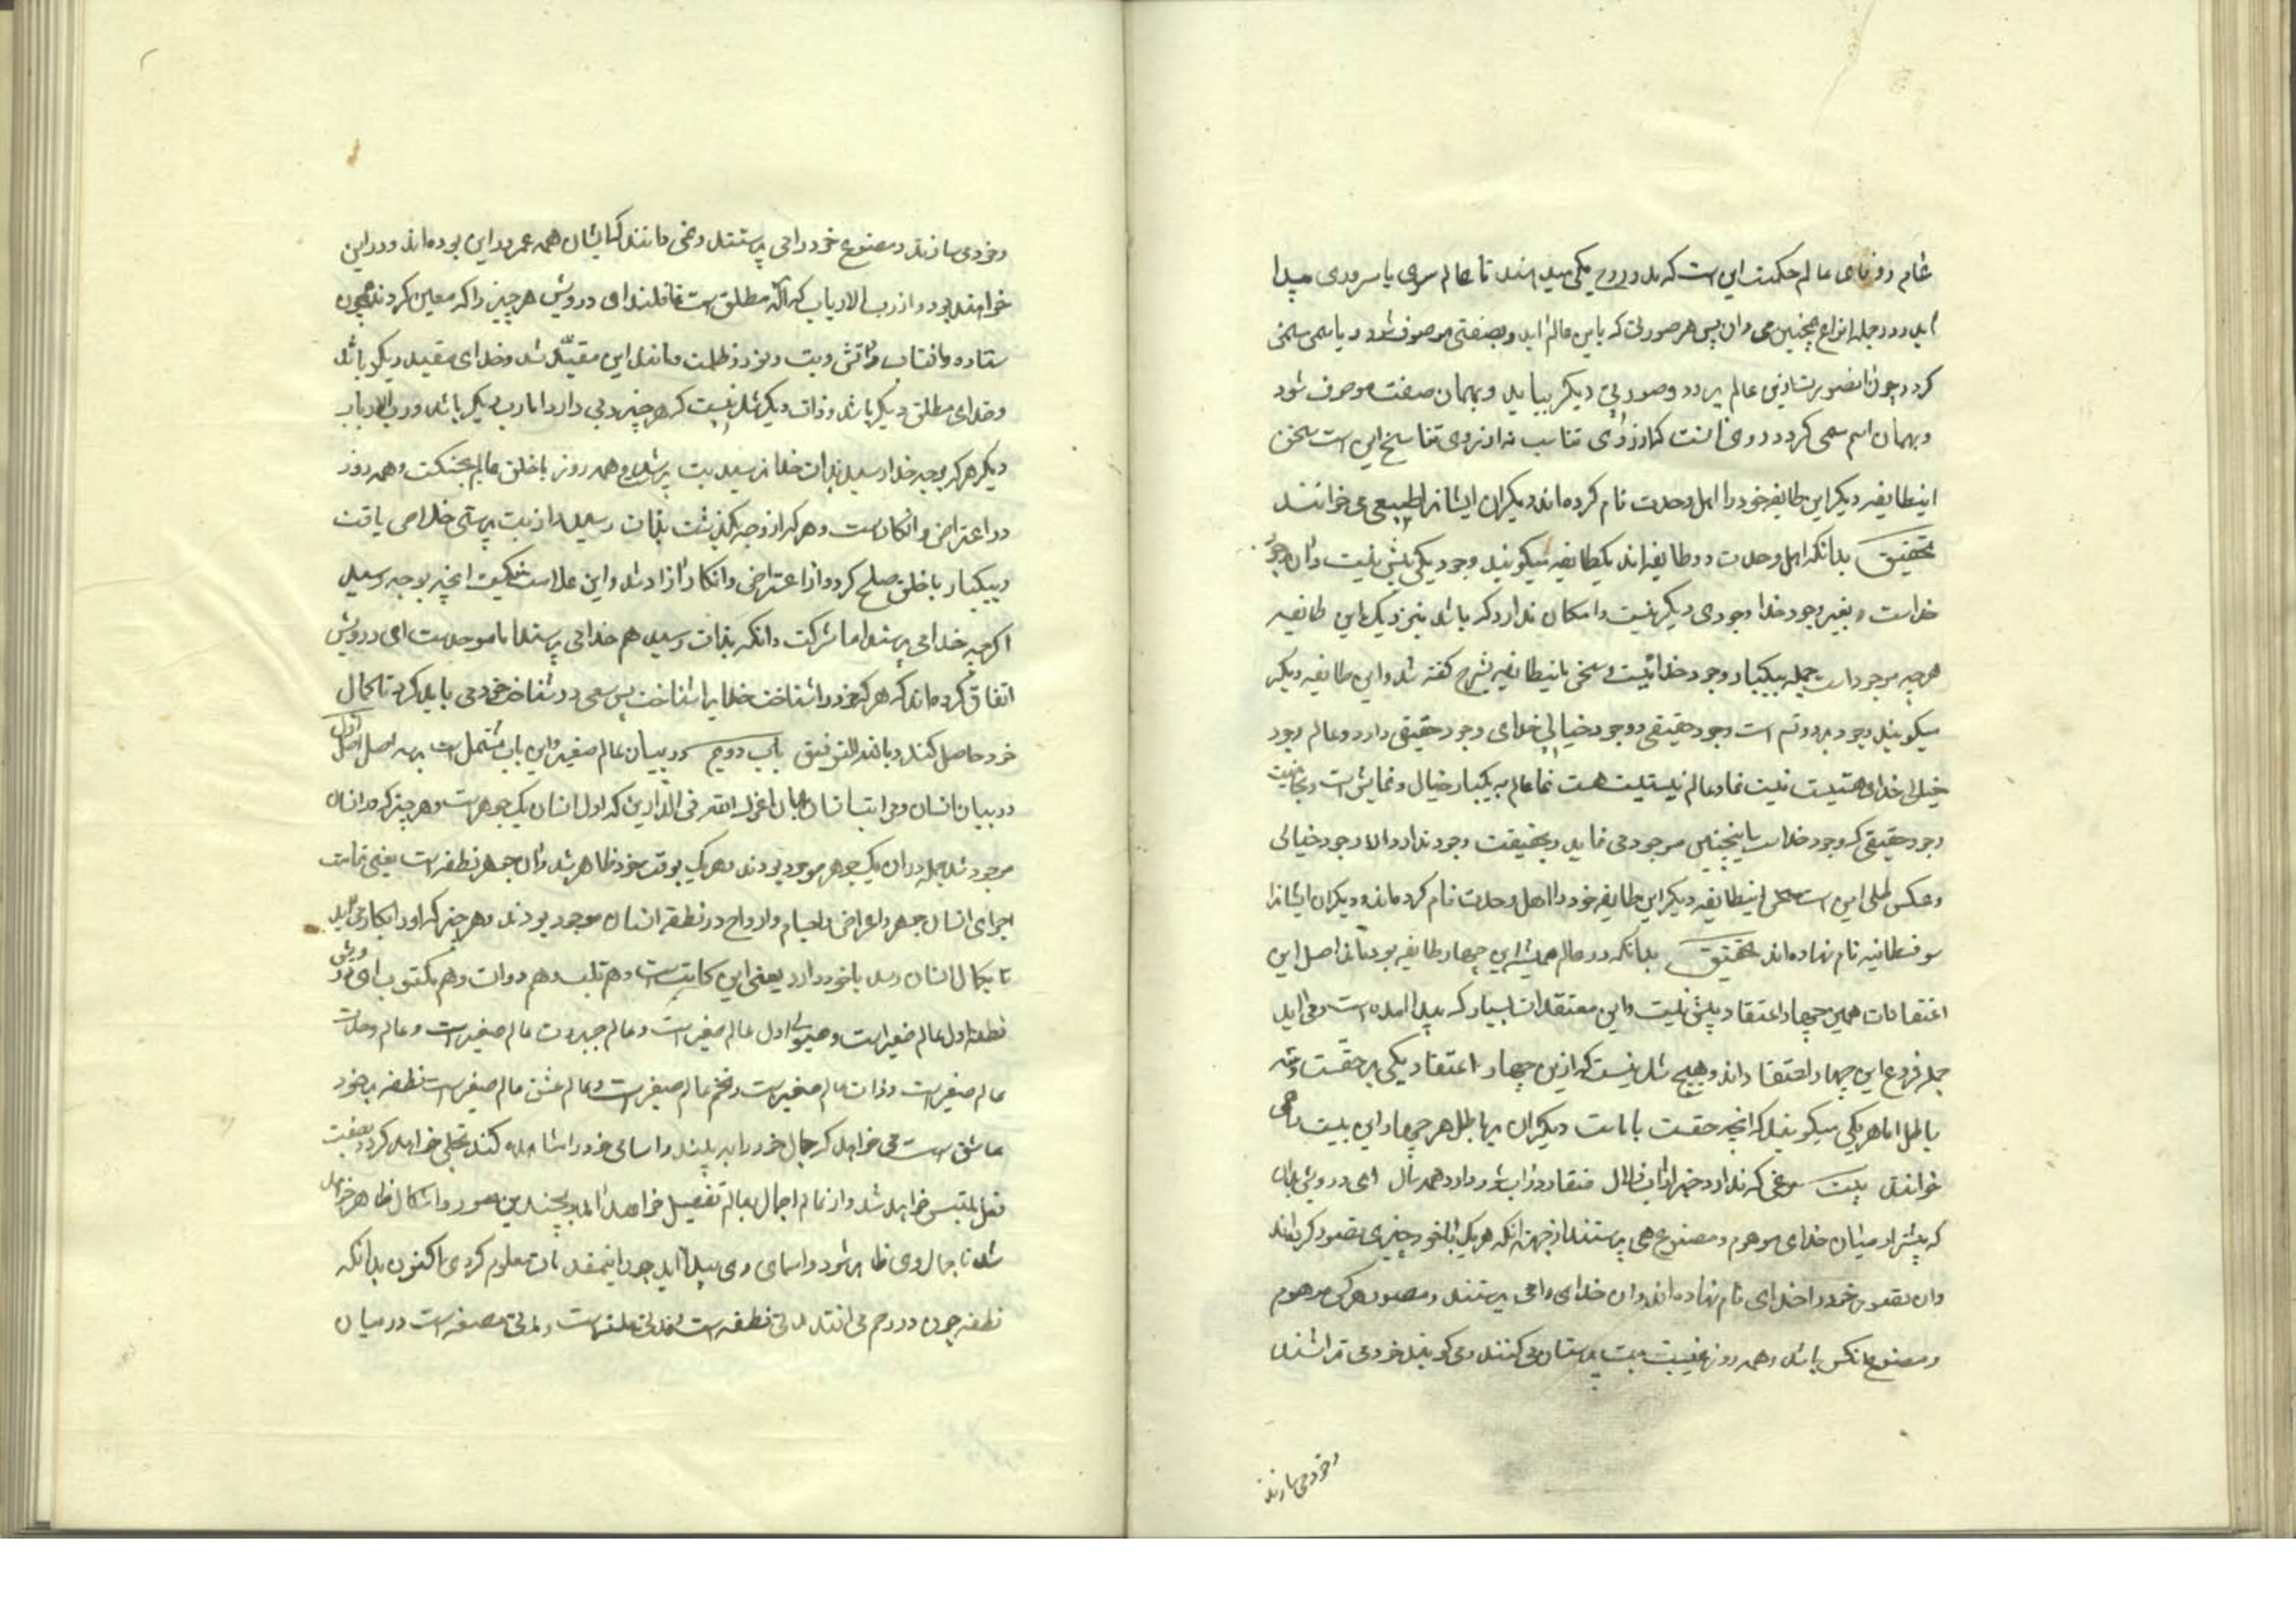 عالم حکمت این است که
اید و در جمله انواع همچنین می‌دان پس هر صورتی که باین عالم اید و بصفتی موصوف شود و باسمی مسمی
کردد چون انصورت ازین عالم برود و صورتی دیگر بیاید و بهمان صفت موصوف شود
و بهمان اسم مسمی کردد از روی تناسب نه از روی تناسخ این است سخن
اینطایفه دیگر این طایفه خود را اهل وحدت نام کرده‌اند و دیگران ایشانرا طبیعی می خوانند
تحقیق بدانکه اهل وحدت دو طایفه‌اند یکطایفه میگویند وجود یکی بیش نیست وان وجود
خداست و بغیر وجود خدا وجودی دیگر نیست و امکان ندارد که باشد بنزدیک این طایفه
هرچه موجود است جمله بیکبار وجود خدائیست و سخن اینطایفه بشرح گفته شد و این طایفه دیگر
میگویند وجود بر دو قسم است وجود حقیقی و وجود خیالی خدای وجود حقیقی دارد و عالم وجود
خیالی خدای هستیست نیست نما و عالم نیستیست هست نما عالم به یکبار خیال و نمایش است و بخاصیت
وجود حقیقی که وجود خداست اینچنین موجود می نماید و بحقیقت وجود ندارد الا وجود خیالی
و عکس و ظلی این است سخن اینطایفه دیگر این طایفه خود را اهل وحدت نام کرده‌اند و دیگران ایشانرا
سوفسطائیه نام نهاده‌اند تحقیق بدانکه در عالم همیشه این چهار طایفه بوده‌اند اصل این
اعتقادات همین چهار اعتقاد بیش نیست و این معتقدات بسیار که پیدا امده است و می اید
جمله فروع این چهار اعتقاد اند و هیچ شک نیست که ازین چهار اعتقاد یکی برحقست و سه
باطل اما هر یکی میگویند که انچه حقست با ماست دیگران برباطل هر چهار این بیت می
خوانند بیت مرغی که ندارد خبر از اب زلال منقار در اب شور دارد همه سال ای درویش بدان
که بیشتر ادمیان خدای موهوم و مصنوع می پرستند از جهت انکه هر یک با خود چیزی تصور کرده‌اند
وان تصور خود را خدای نام نهاده‌اند وان خدای را می پرستند و متصور هرکس موهوم
و مصنوع انکس باشد و همه روز غیبت بت پرستان می کنند و می گویند خود می تراشند
و خود می سازند
و خود می سازند و مصنوع خود را می پرستند و نمی دانند که ایشان همه عمر درین بوده‌اند و در این
خواهند بود و از رب الارباب که اله مطلق است غافلند ای درویش هر چیز را که معین کردند همچون
ستاره و افتاب و اتش و بت و نور و ظلمت و مانند این مقید شد و خدای مقید دیگر باشد
و خدای مطلق دیگر باشد و ذات دیگر شک نیست که هر چیز ربی دارد اما رب دیگر باشد و رب الارباب
دیگر هر که بوجه خدا رسید بذات خدا نرسید بت پرست شد و همه روز با خلق عالم بجنگست و همه روز
در اعتراض و انکار است و هر که از وجه بگذشت بذات رسید از بت پرستی خلاصی یافت
و بیکبار با خلق صلح کرد و از اعتراض و انکار ازاد شد و این علامت
اگرچه خدا می پرستد اما مشرکست و انکه بذات رسید هم خدا می پرستد اما موحد است ای درویش
اتفاق کرده‌اند که هر که خود را شناخت خدایرا شناخت پس سعی در شناخت خود می باید کرد تا کمال
خود حاصل کنند و بالله التوفیق باب دویم در بیان عالم صغیر و این باب مشتمل است بر سه اصل اصل اول
در بیان انسان و مراتب انسان بدان اعزک الله فی الدارین که اول انسان یک جوهر است و هر چیز که در انسان
موجود شد جمله در ان یک جوهر موجود بودند و هر یک بوقت خود ظاهر شد وان جوهر نطفه است یعنی تمامت
اجزای انسان جوهر و اعراض و اجسام و ارواح در نطفه انسان موجود بودند و هر چیز که او را بکار می اید
تا بکمال انسان رسد باخود دارد یعنی این کاتبست و هم قلم و هم دوات و هم مکتوب ای درویش
نطفه اول عالم صغیر است و هیولی اول عالم صغیر است و عالم جبروت عالم صغیر است و عالم وحدت
عالم صغیر است و ذات عالم صغیر است و تخم عالم صغیر است و عالم عشق عالم صغیر است نطفه بر خود
عاشق است می خواهد که جمال خود را ببیند و اسامی خود را مشاهده کند تجلی خواهد کرد و بصفت
فعل ملتبس خواهد شد و از عالم اجمال بعالم تفصیل خواهد امد و بچندین صور و اشکال ظاهر خواهد
شد تا جمال وی ظاهر شود و اسمای وی پیدا اید چون اینمقدمات معلوم کردی اکنون بدانکه
نطفه چون در رحم می افتد مدتی نطفه است و مدتی علقه است و مدتی مضغه است و در میان